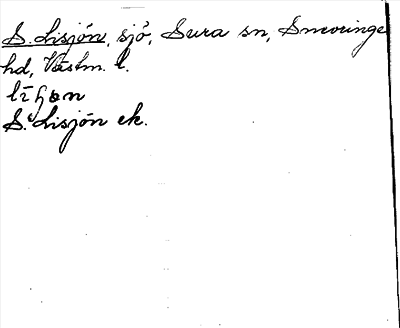 S. Lisjön, sjö, Sura sn, Snevringe
hd, Västm. l.
S. Lisjön ek.